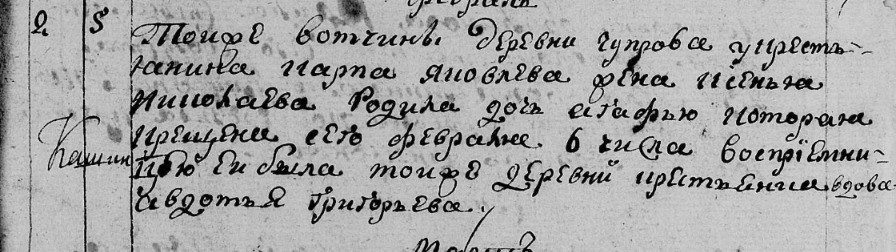 февраль
2 5 Тоиже вотчины деревни чупрова у крестъ-
янина карпа яковлева жена ксенья
николаева родила дочь агафью которая
крещена сего февраля 6 числа воспрiемни-
Кашин
цею ей была тоиже деревни крестьянина вдова
авдотья григорьева.
мартъ